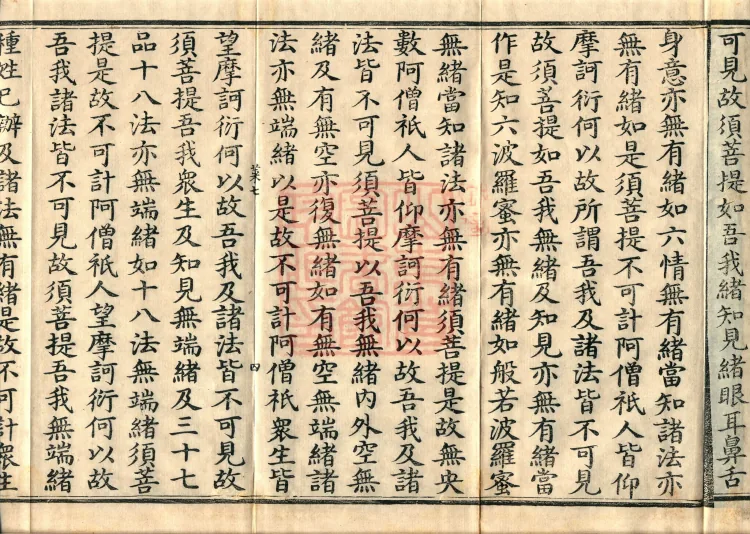 可見故須菩提如吾我緒知見緒眼耳鼻舌
身意亦無有緒如六情無有緒當知諸法亦
無有緒如是須菩提不可計阿僧祇人皆仰
摩訶衍何以故所謂吾我及諸法皆不可見
故須菩提如吾我無緒及知見亦無有緒當
作是知六波羅蜜亦無有緒如般若波羅蜜
無緒當知諸法亦無有緒須菩提是故無央
數阿僧祇人皆仰摩訶衍何以故吾我及諸
法皆不可見須菩提以吾我無緒內外空無
緒及有無空亦復無緒如有無空無端緒諸
法亦無端緒以是故不可計阿僧祇衆生皆
菜七
四
望摩訶衍何以故吾我及諸法皆不可見故
須菩提吾我衆生及知見無端緒及三十七
品十八法亦無端緒如十八法無端緒須菩
提是故不可計阿僧祇人望摩訶衍何以故
吾我諸法皆不可見故須菩提吾我無端緒
種姓已辦及諸法無有緒是故不可計衆生